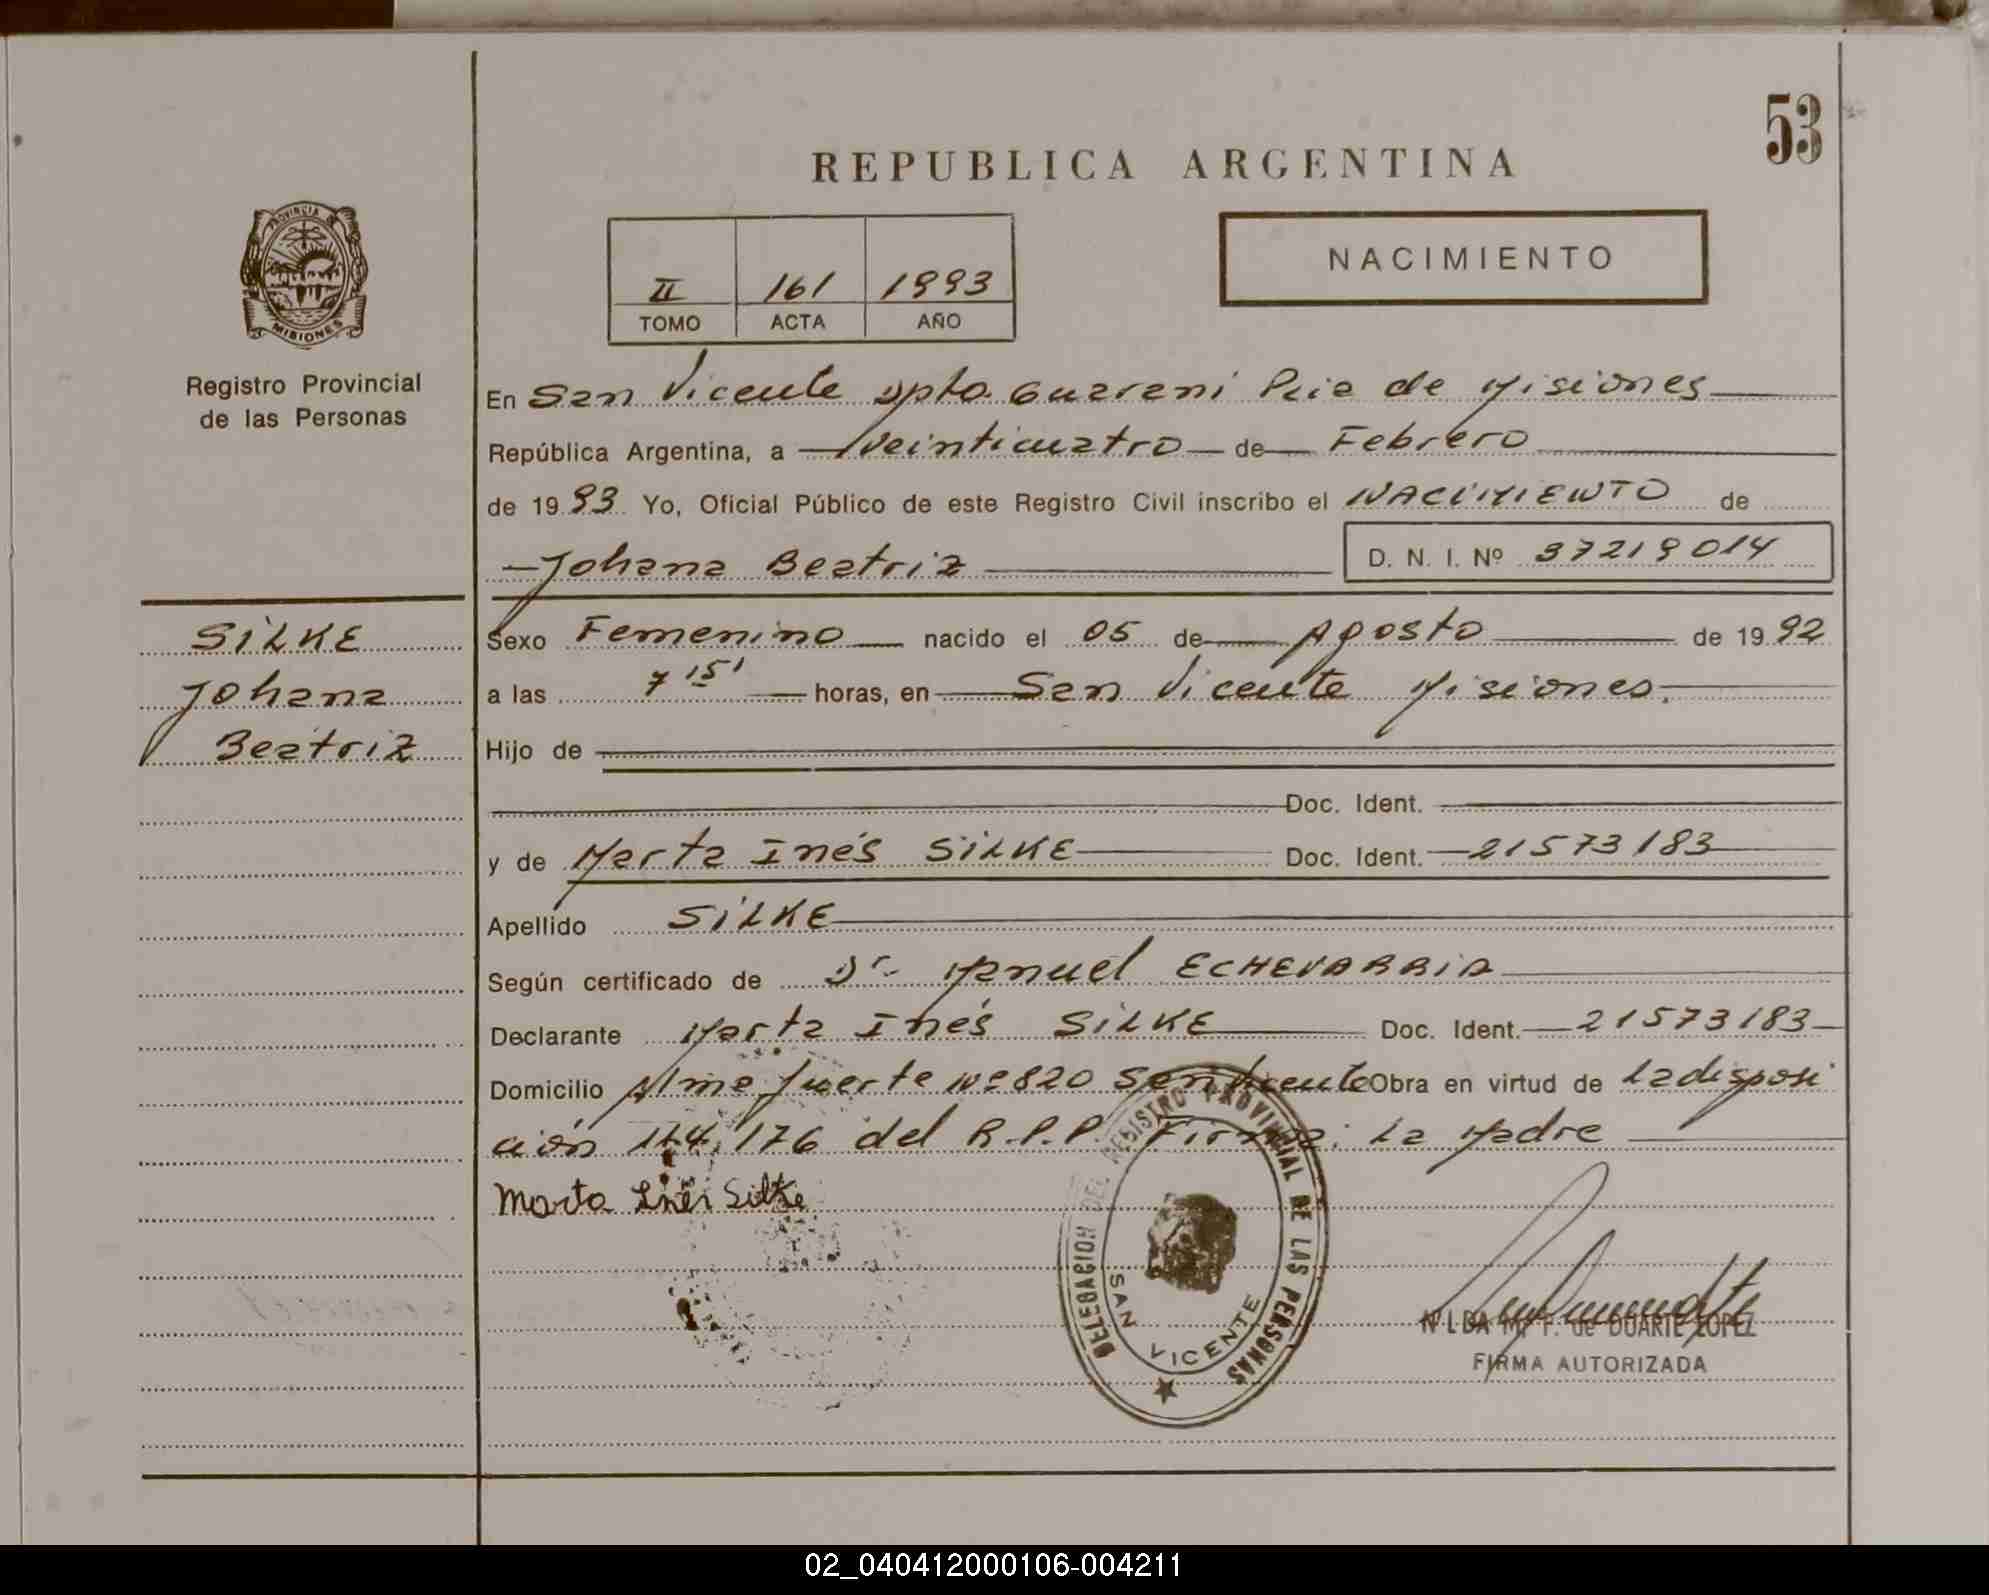 53
REPUBLICA ARGENTINA
PROVINCIA DE MISIONES
Registro Provincial
de las Personas
II 161 1993
TOMO ACTA AÑO
NACIMIENTO
En San Vicente Dpto. Guarani Pcia de Misiones
República Argentina, a veinticuatro de Febrero
de 1993 Yo, Oficial Público de este Registro Civil inscribo el NACIMIENTO de
Johana Beatriz D. N. I. Nº 37219014
SILKE
Johana
Beatriz
Sexo Femenino nacido el 05 de Agosto de 1992
a las 7 15' horas, en San Vicente Misiones.
Hijo de
Doc. Ident.
y de Marta Inés SILKE Doc. Ident. 21573183
Apellido SILKE
Según certificado de Dr. Manuel ECHEVARRIA
Declarante Marta Inés SILKE Doc. Ident. 21573183
Domicilio Alme fuerte Nº 820 San Vicente Obra en virtud de La disposi
ción 114/176 del R.P.P. Firma: La Madre
Marta Inés Silke
DELEGACION DEL REGISTRO PROVINCIAL DE LAS PERSONAS
SAN VICENTE
NILDA Mª F. de DUARTE LOPEZ
FIRMA AUTORIZADA
02_040412000106-004211